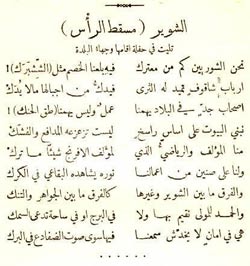 الشوير (مسقط الرأس)
تليت في حفلة اقامها وجهاء البلدة
نحن الشوريين كم من معترك فيه يلعنا الخصم مثل (الششبرك)!
ارباب شاقوف نمهد له الذرى فيدك من اجبالها ما لا يدك
اصحاب جد في البلاد يهمنا عمل وليس يهمنا (طق الحنك)!
نبني البيوت على اساس راسخ ليست تزعزعه المدافع والفشك
منا المؤلف والرياضي الذي لمؤلف الافرنج شيئا ما ترك
ولنا على صنين من اعمالنا نوره يشاهده البقاعي في الكرك
والفرق ما بين الشوير وغيرها كالفرق ما بين الجواهر والتنك
والحمد للمولى نقيم بها ولا في البرج او في ساحة تدعى السمك
هي في امان لا يخدش سمعنا فيها سوى صوت الضفادع في البرك